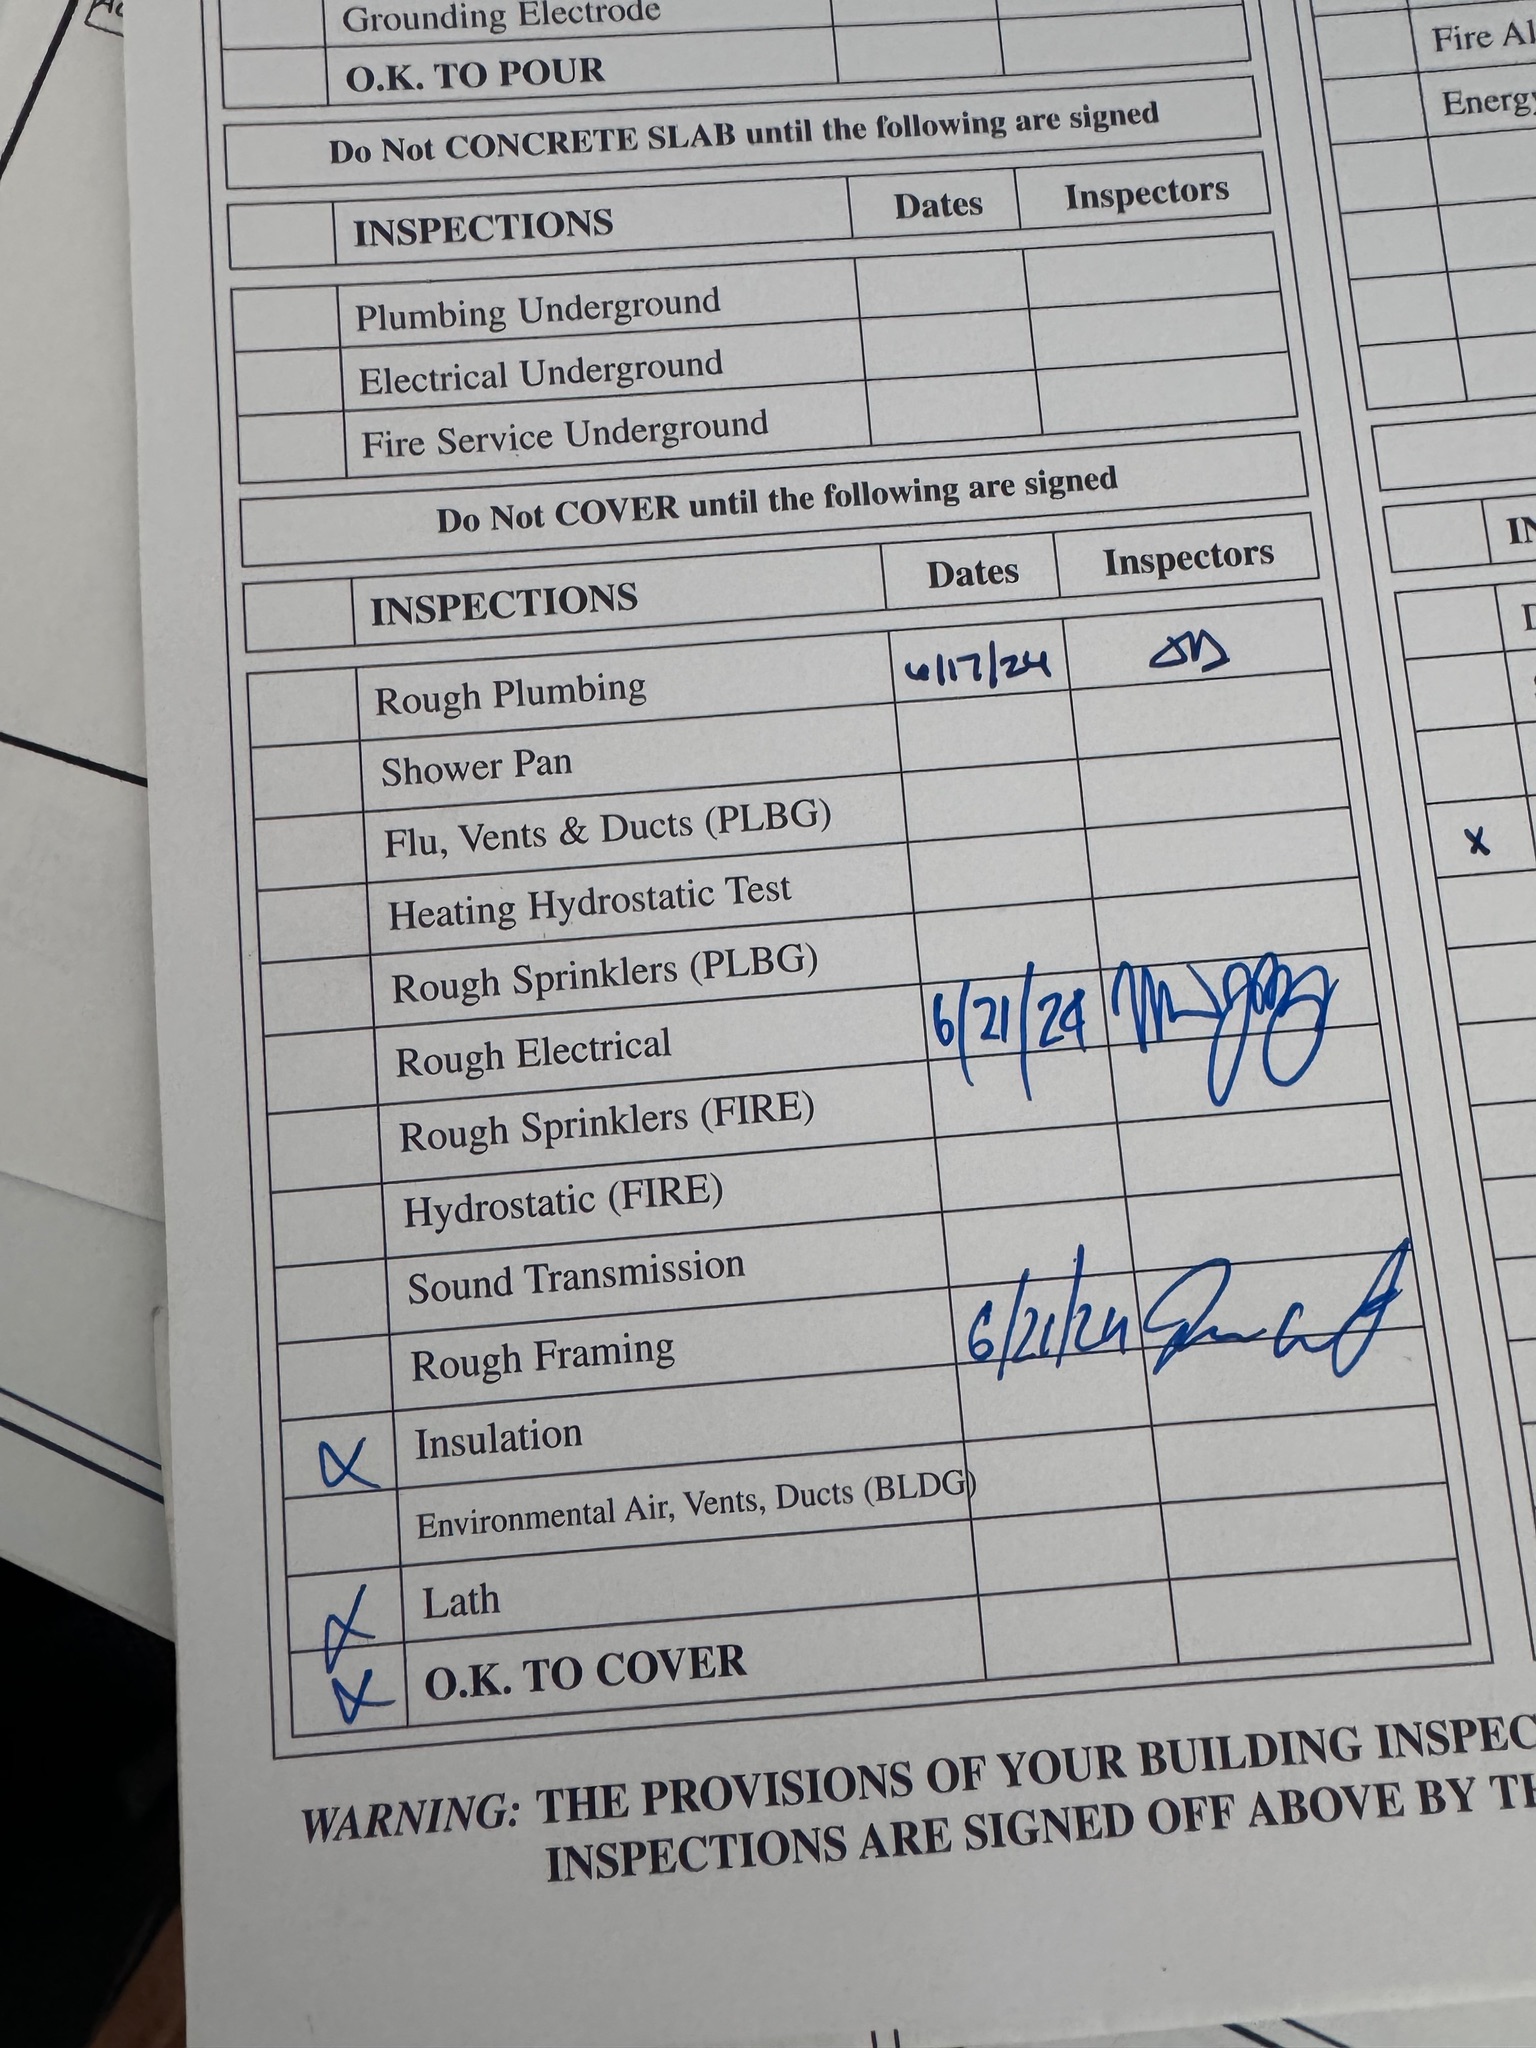 Grounding Electrode
O.K. TO POUR
Do Not CONCRETE SLAB until the following are signed
INSPECTIONS Dates Inspectors
Plumbing Underground
Electrical Underground
Fire Service Underground
Do Not COVER until the following are signed
INSPECTIONS Dates Inspectors
Rough Plumbing 6/17/24
Shower Pan
Flu, Vents & Ducts (PLBG)
Heating Hydrostatic Test
Rough Sprinklers (PLBG)
Rough Electrical 6/21/24
Rough Sprinklers (FIRE)
Hydrostatic (FIRE)
Sound Transmission
Rough Framing 6/21/24
X Insulation
Environmental Air, Vents, Ducts (BLDG)
X Lath
X O.K. TO COVER
WARNING: THE PROVISIONS OF YOUR BUILDING INSPEC
INSPECTIONS ARE SIGNED OFF ABOVE BY TH
Fire Al
Energy
IN
X